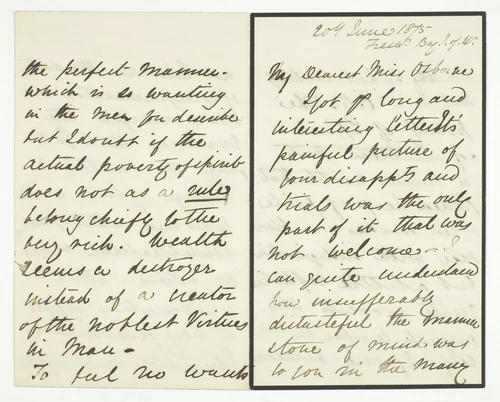 20th June 1875
Freshr. Bay I. of W.
My Dearest Miss Osborne
I got yr long and
interesting letter. Its
painful picture of
your disappts and
trials was the only
part of it that was
not welcome - I
can quite understand
how insufferably
distasteful the manner
& tone of mind was
to you in the many
the perfect manner.
which is so wanting
in the men you describe
but I doubt if the
actual poverty of spirit
does not as a rule
belong chiefly to the
very rich. Wealth
seems a destroyer
instead of a creator
of the noblest Virtues
in Man -
To feel no wants